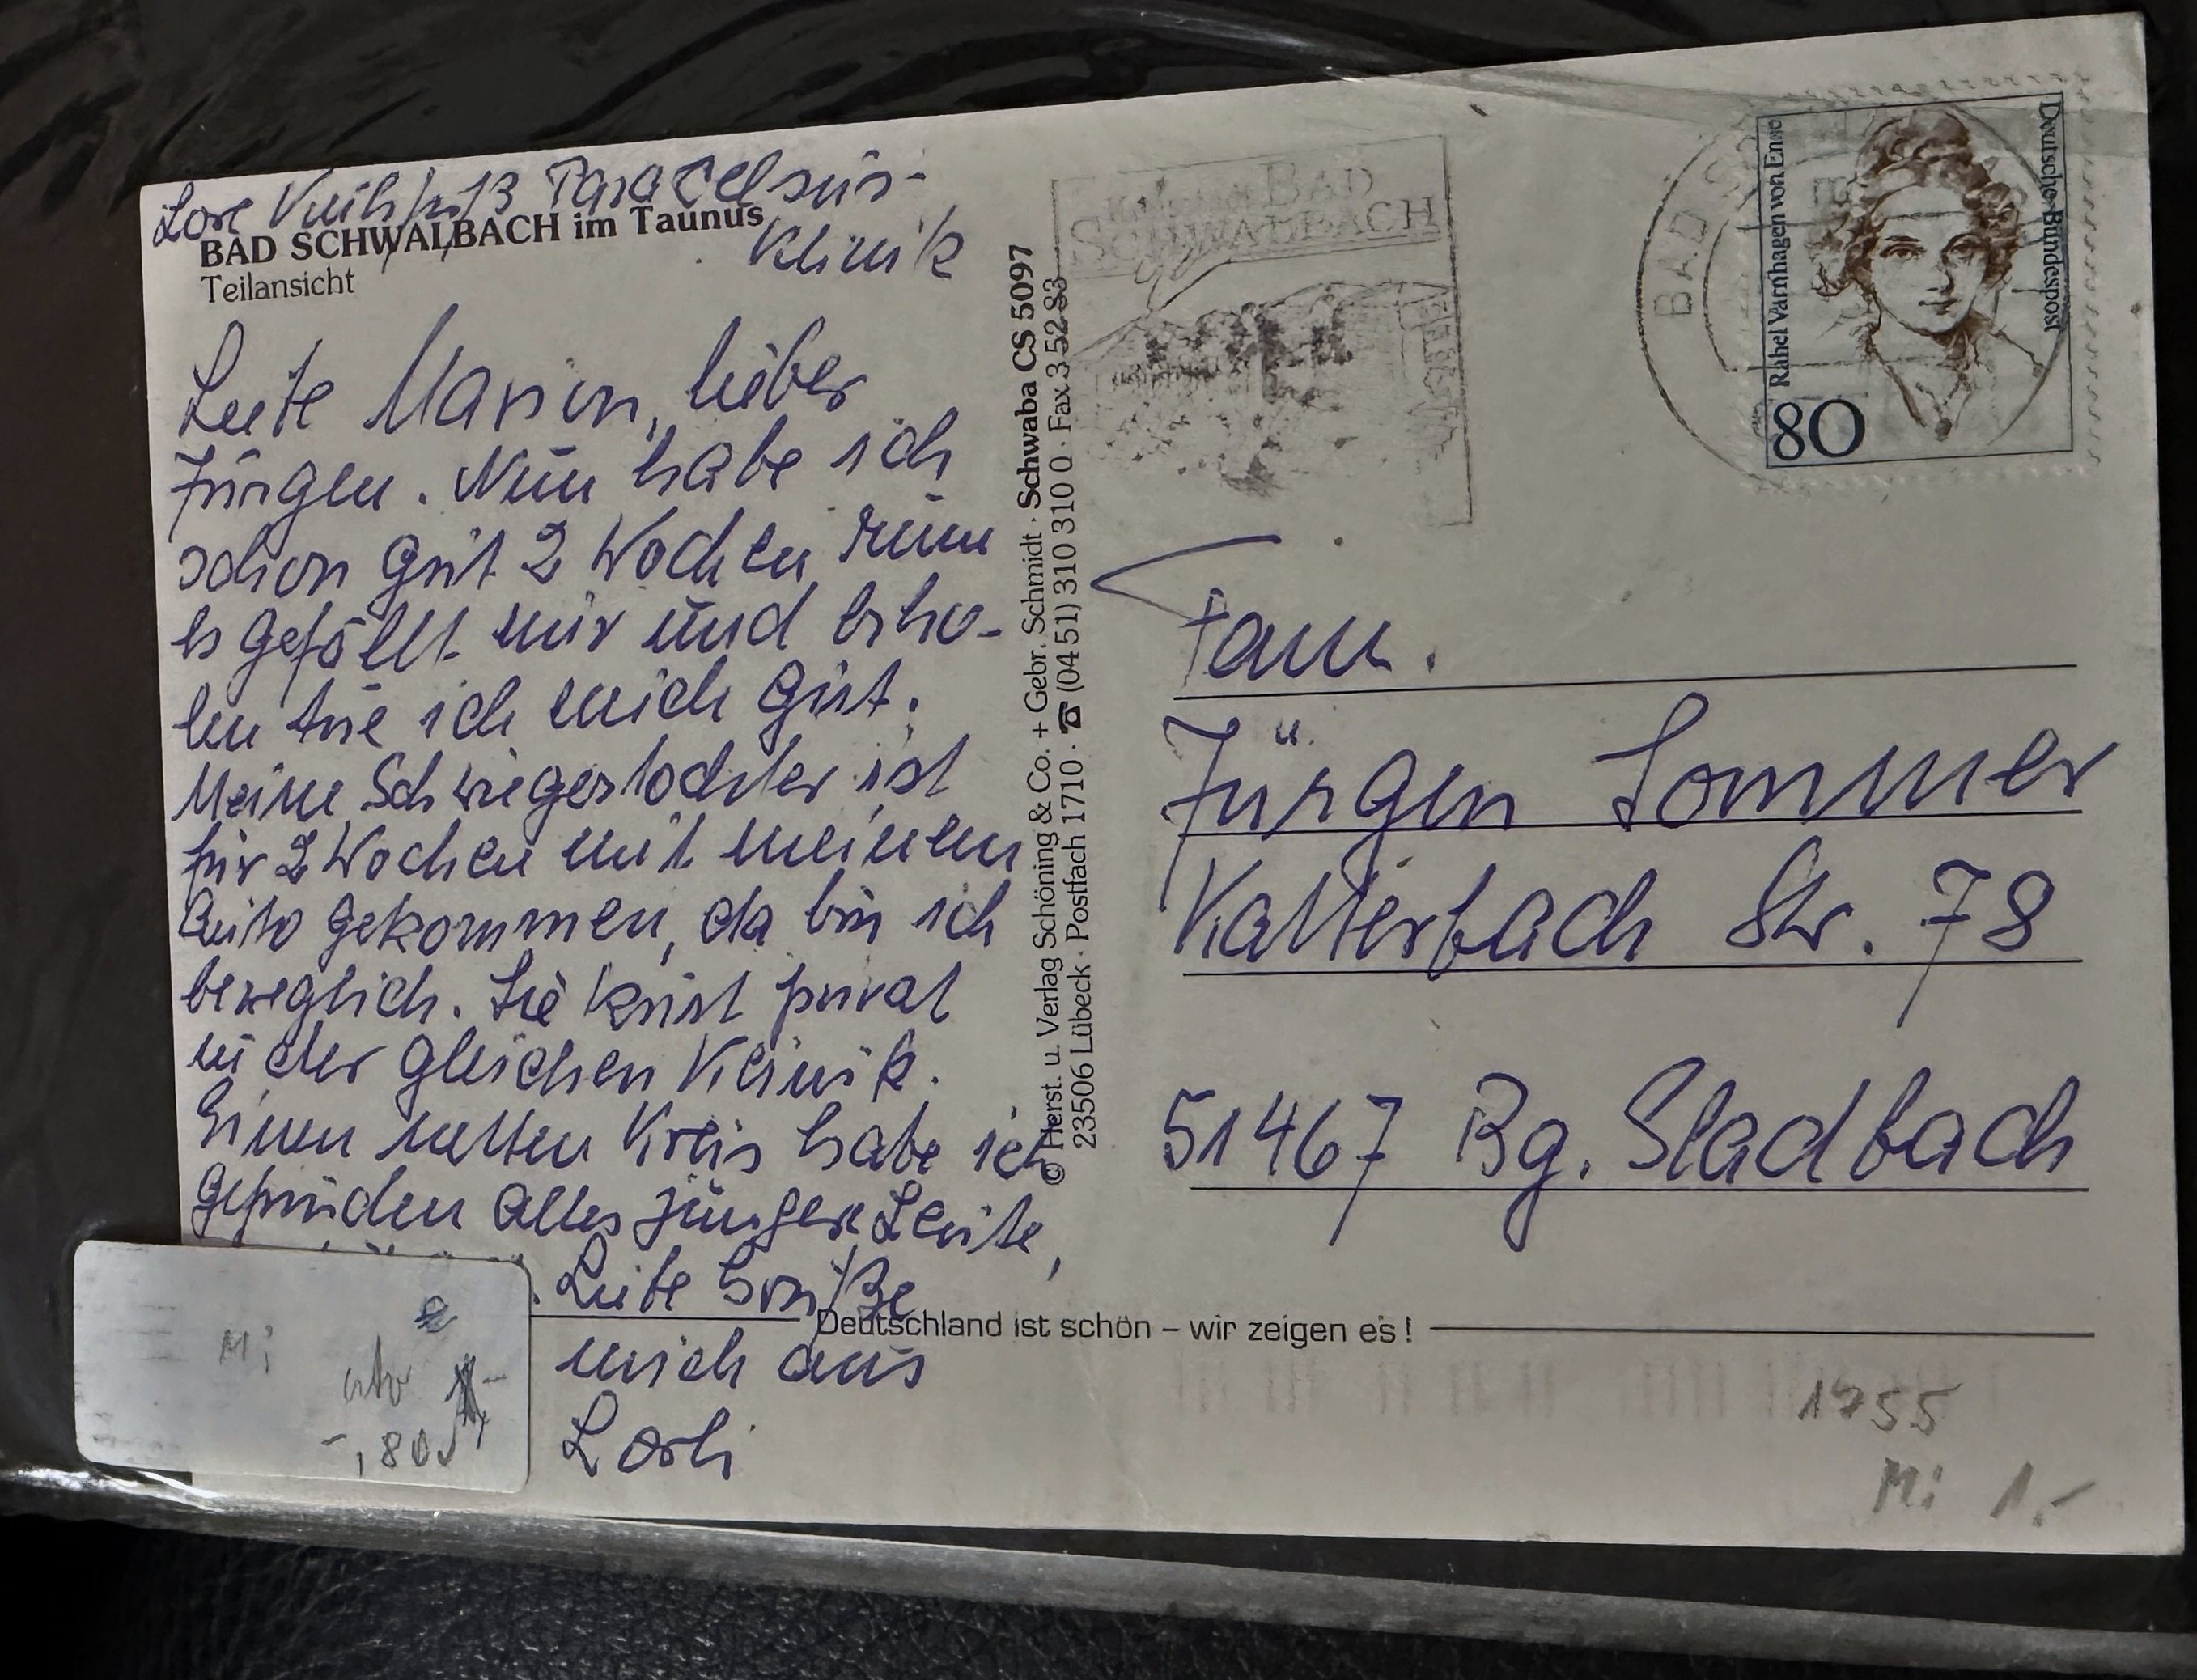 Lore Paracelsus-
Klinik
BAD SCHWALBACH im Taunus
Teilansicht
Liebe Marion, lieber
Jürgen. Nun habe ich
schon gut 2 Wochen rum
Es gefällt mir und erho-
len tue ich mich gut.
Meine Schwiegertochter ist
für 2 Wochen mit meinem
Auto gekommen, da bin ich
beweglich. Sie kurt privat
in der gleichen Klinik.
Einen netten Kreis habe ich
gefunden alles jüngere Leute,
Liebe Grüße
mich aus
Lorli
© Herst. u. Verlag Schöning & Co. + Gebr. Schmidt · Schwaba CS 5097
23506 Lübeck · Postfach 1710 · ☎ (04 51) 310 310 0 · Fax 3 52 83
BAD
SCHWALBACH
BAD
Rahel Varnhagen von Ense
Deutsche Bundespost
80
Fam.
Jürgen Sommer
Katterbach Str. 78
51467 Bg. Gladbach
Deutschland ist schön – wir zeigen es!
Mi
-,80
1755
Mi 1,-